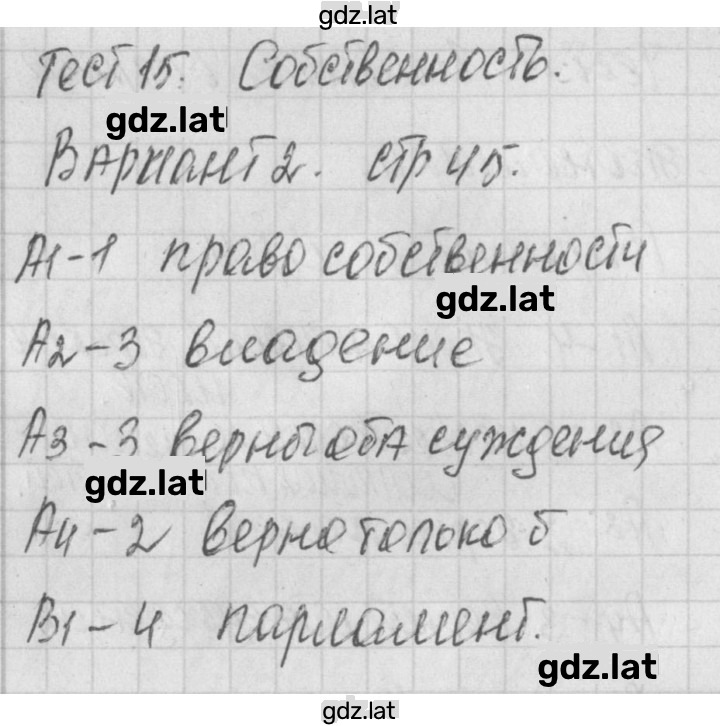 gdz.lat
Тест 15. Собственность.
gdz.lat
Вариант 2. стр 45.
А1-1 право собственности
gdz.lat
А2-3 владение
А3-3 верны оба суждения
gdz.lat
А4-2 верно только б
В1-4 парламент.
gdz.lat
gdz.lat